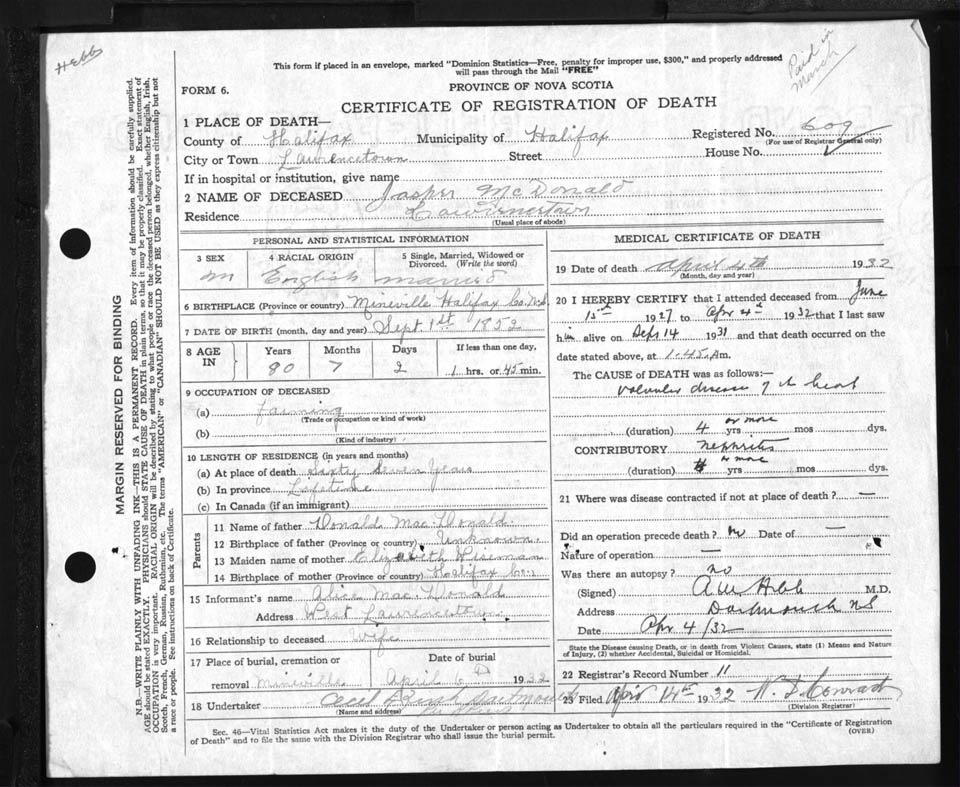 Hebbs
Paid in
March
This form if placed in an envelope, marked "Dominion Statistics—Free, penalty for improper use, $300," and properly addressed
will pass through the Mail "FREE"
FORM 6.
PROVINCE OF NOVA SCOTIA
CERTIFICATE OF REGISTRATION OF DEATH
1 PLACE OF DEATH—
County of Halifax Municipality of Halifax Registered No. 609
(For use of Registrar General only)
City or Town Lawrencetown Street House No.
If in hospital or institution, give name
2 NAME OF DECEASED Jasper McDonald
Residence Lawrencetown
(Usual place of abode)
PERSONAL AND STATISTICAL INFORMATION
3 SEX 4 RACIAL ORIGIN 5 Single, Married, Widowed or
Divorced. (Write the word)
M English married
6 BIRTHPLACE (Province or country) Mineville Halifax Co. N.S.
7 DATE OF BIRTH (month, day and year) Sept 1st 1852
8 AGE IN Years Months Days If less than one day,
80 7 2 1 hrs. or 45 min.
9 OCCUPATION OF DECEASED
(a) farming
(Trade or occupation or kind of work)
(b)
(Kind of industry)
10 LENGTH OF RESIDENCE (in years and months)
(a) At place of death Sixty Seven Years
(b) In province Lifetime
(c) In Canada (if an immigrant)
Parents
11 Name of father Donald MacDonald
12 Birthplace of father (Province or country) Unknown
13 Maiden name of mother Elizabeth Wiseman
14 Birthplace of mother (Province or country) Halifax Co.
15 Informant's name Alice MacDonald
Address West Lawrencetown
16 Relationship to deceased Wife
17 Place of burial, cremation or Date of burial
removal Mineville April 6 1932
18 Undertaker Cecil Dartmouth
(Name and address)
MEDICAL CERTIFICATE OF DEATH
19 Date of death April 4th 1932
(Month, day and year)
20 I HEREBY CERTIFY that I attended deceased from June
15th 1927 to Apr 4th 1932 that I last saw
him alive on Sept 14 1931 and that death occurred on the
date stated above, at 1.45 Am.
The CAUSE of DEATH was as follows:—
Valvular disease of the heart
(duration) 4 or more yrs mos dys.
CONTRIBUTORY Nephritis
(duration) or more yrs mos dys.
21 Where was disease contracted if not at place of death? —
Did an operation precede death? No Date of —
Nature of operation —
Was there an autopsy? no
(Signed) M.D.
Address Dartmouth NS
Date Apr 4/32
State the Disease causing Death, or in death from Violent Causes, state (1) Means and Nature
of Injury, (2) whether Accidental, Suicidal or Homicidal.
22 Registrar's Record No. 11
23 Filed April 14th 1932 Conrad
(Division Registrar)
Sec. 46—Vital Statistics Act makes it the duty of the Undertaker or person acting as Undertaker to obtain all the particulars required in the "Certificate of Registration
of Death" and to file the same with the Division Registrar who shall issue the burial permit.
(OVER)
MARGIN RESERVED FOR BINDING
N.B.—WRITE PLAINLY WITH UNFADING INK—THIS IS A PERMANENT RECORD. Every item of information should be carefully supplied.
AGE should be stated EXACTLY. PHYSICIANS should STATE CAUSE OF DEATH in plain terms, so that it may be properly classified. Exact statement of
OCCUPATION is very important. RACIAL ORIGIN will be described by stating to what people or race the deceased person belonged, whether English, Irish,
Scotch, French, German, Russian, Ruthenian, etc. The terms "AMERICAN" or "CANADIAN" SHOULD NOT BE USED as they express citizenship but not
a race or people. See instructions on back of Certificate.